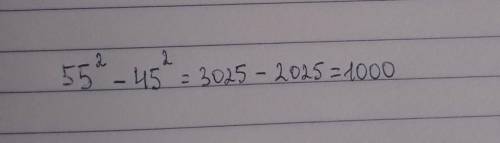 55² - 45² = 3025 - 2025 = 1000